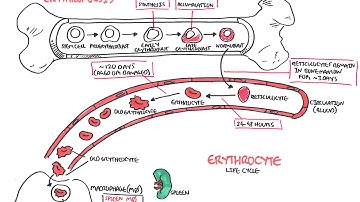 ERYTHROPOIESIS
SYNTHESIS
ACCUMULATION
STEM CELL
PROERYTHROBLAST
EARLY
ERYTHROBLAST
LATE
ERYTHROBLAST
NORMOBLAST
~120 DAYS
(AGED OR DAMAGED)
RETICULOCYTES REMAIN
IN BONE MARROW
FOR ~3 DAYS
OLD ERYTHROCYTE
ERYTHROCYTE
RETICULOCYTE
CIRCULATION
(BLOOD)
24-48 HOURS
OLD ERYTHROCYTE
ERYTHROCYTE
LIFE CYCLE
MACROPHAGE (MØ)
SPLEEN MØ
SPLEEN